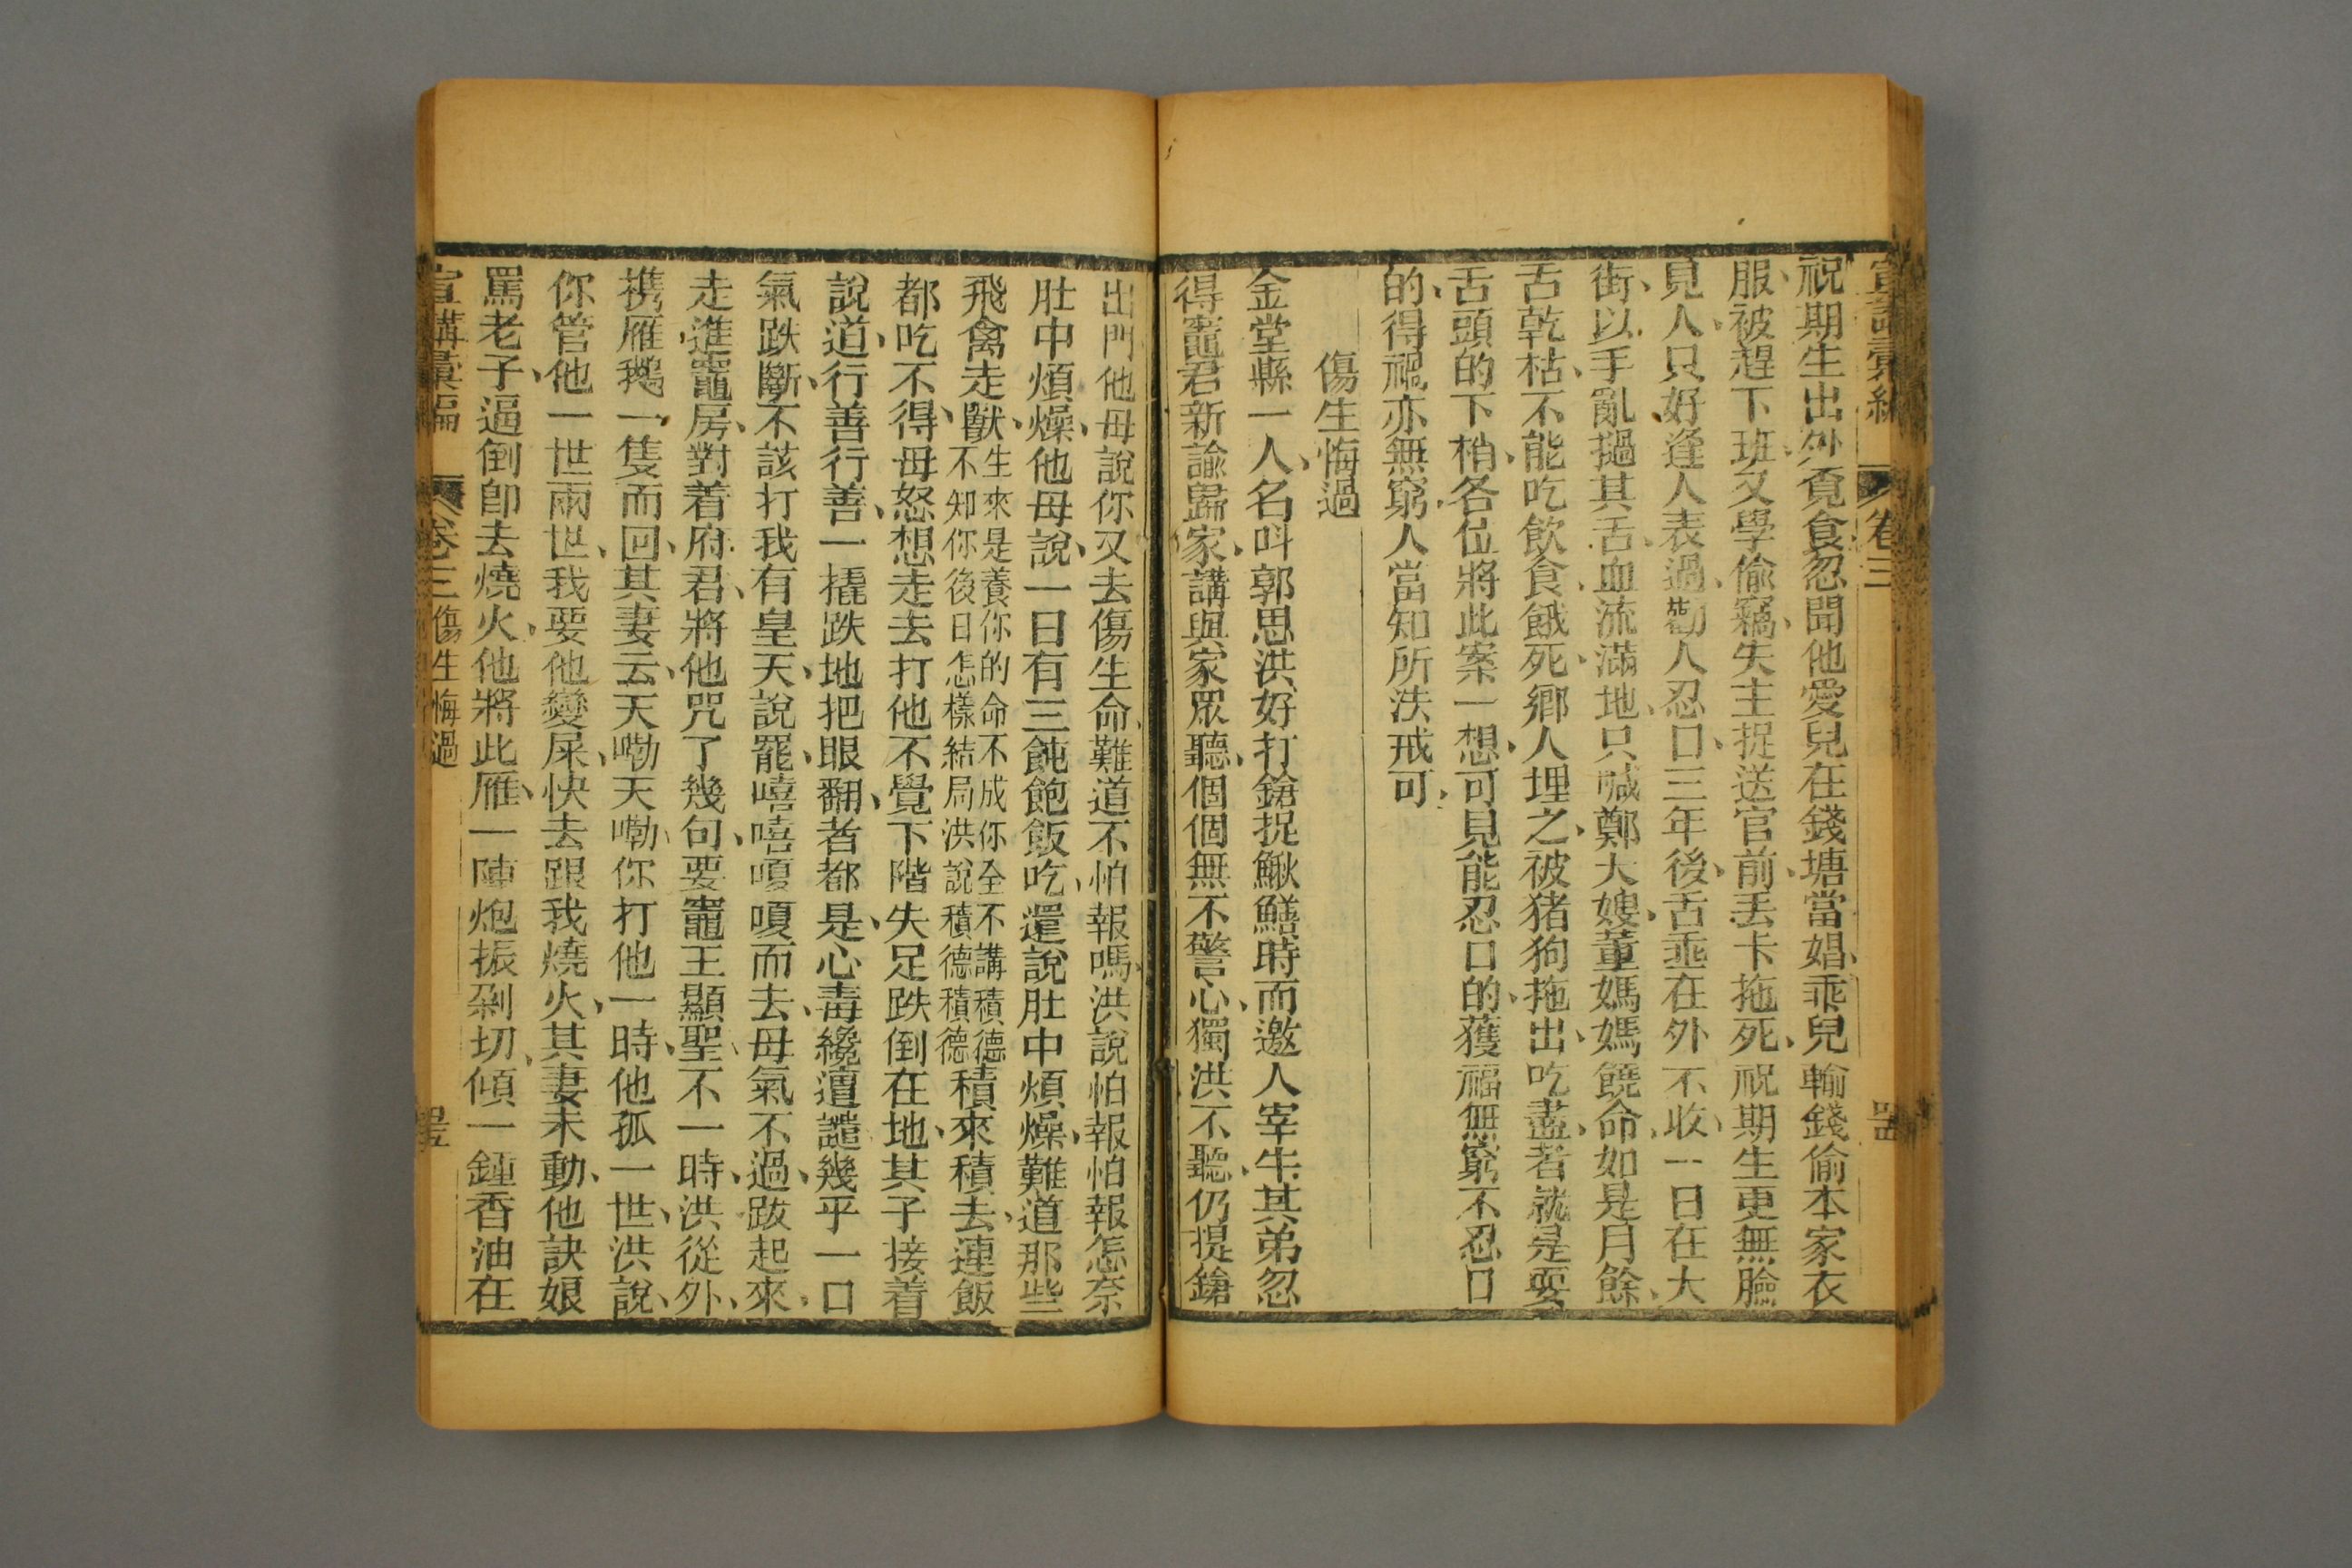 宣講彙編 卷三
祝期生出外覓食忽聞他愛兒在錢塘當娼乖兒輸錢偷本家衣
服被趕下班又學偷竊失主捉送官前丟卡拖死祝期生更無臉
見人只好逢人表過勸人忍口三年後舌垂在外不收一日在大
街以手亂撾其舌血流滿地只喊鄭大嫂董媽媽饒命如是月餘
舌乾枯不能吃飲食餓死鄉人埋之被猪狗拖出吃盡者就是耍
舌頭的下梢各位將此案一想可見能忍口的獲福無窮不忍口
的得禍亦無窮人當知所法戒可
傷生悔過
金堂縣一人名呌郭思洪好打鎗捉鰍鱔時而邀人宰牛其弟忽
得竈君新諭歸家講與家眾聽個個無不警心獨洪不聽仍提鎗
出門他母說你又去傷生命難道不怕報嗎洪說怕報怕報怎奈
肚中煩燥他母說一日有三飩飽飯吃還說肚中煩燥難道那些
飛禽走獸生來是養你的命不成你全不講積德不知你後日怎樣結局洪說積德積德積來積去連飯
都吃不得母怒想走去打他不覺下階失足跌倒在地其子接着
說道行善行善一撬跌地把眼翻者都是心毒纔遭譴幾乎一口
氣跌斷不該打我有皇天說罷嘻嘻嗄嗄而去母氣不過跋起來
走進竈房對着府君將他咒了幾句要竈王顯聖不一時洪從外
携雁鵝一隻而回其妻云天嘞天嘞你打他一時他孤一世洪說
你管他一世兩世我要他變屎快去跟我燒火其妻未動他訣娘
罵老子逼倒卽去燒火他將此雁一陣炮振剁切傾一鍾香油在
宣講彙編 卷三 傷生悔過